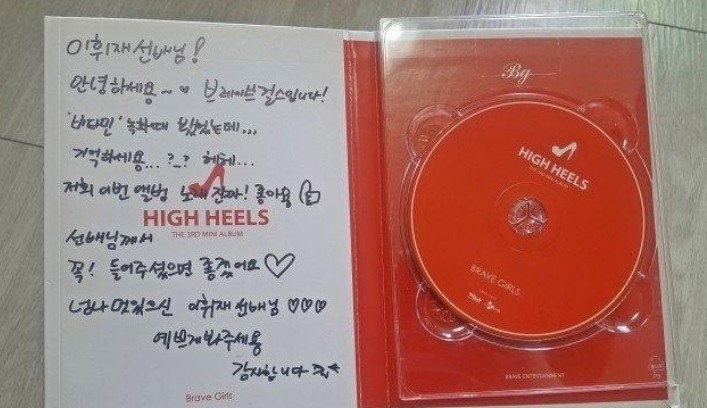 이휘재 선배님!
안녕하세용~♥ 브레이브걸스입니다!
'비타민' 녹화때 봤었는데...
기억하세용...?_? 헤헤...
저희 이번 앨범 노래 진짜! 좋아욤
HIGH HEELS
THE 3RD MINI ALBUM
선배님께서
꼭! 들어주셨으면 좋겠어요♡
너무나 멋있으신 이휘재 선배님 ♡♡♡
예쁘게봐주세용
감사합니다
Brave Girls
Bg
HIGH HEELS
THE 3RD MINI ALBUM
BRAVE GIRLS
BRAVE ENTERTAINMENT